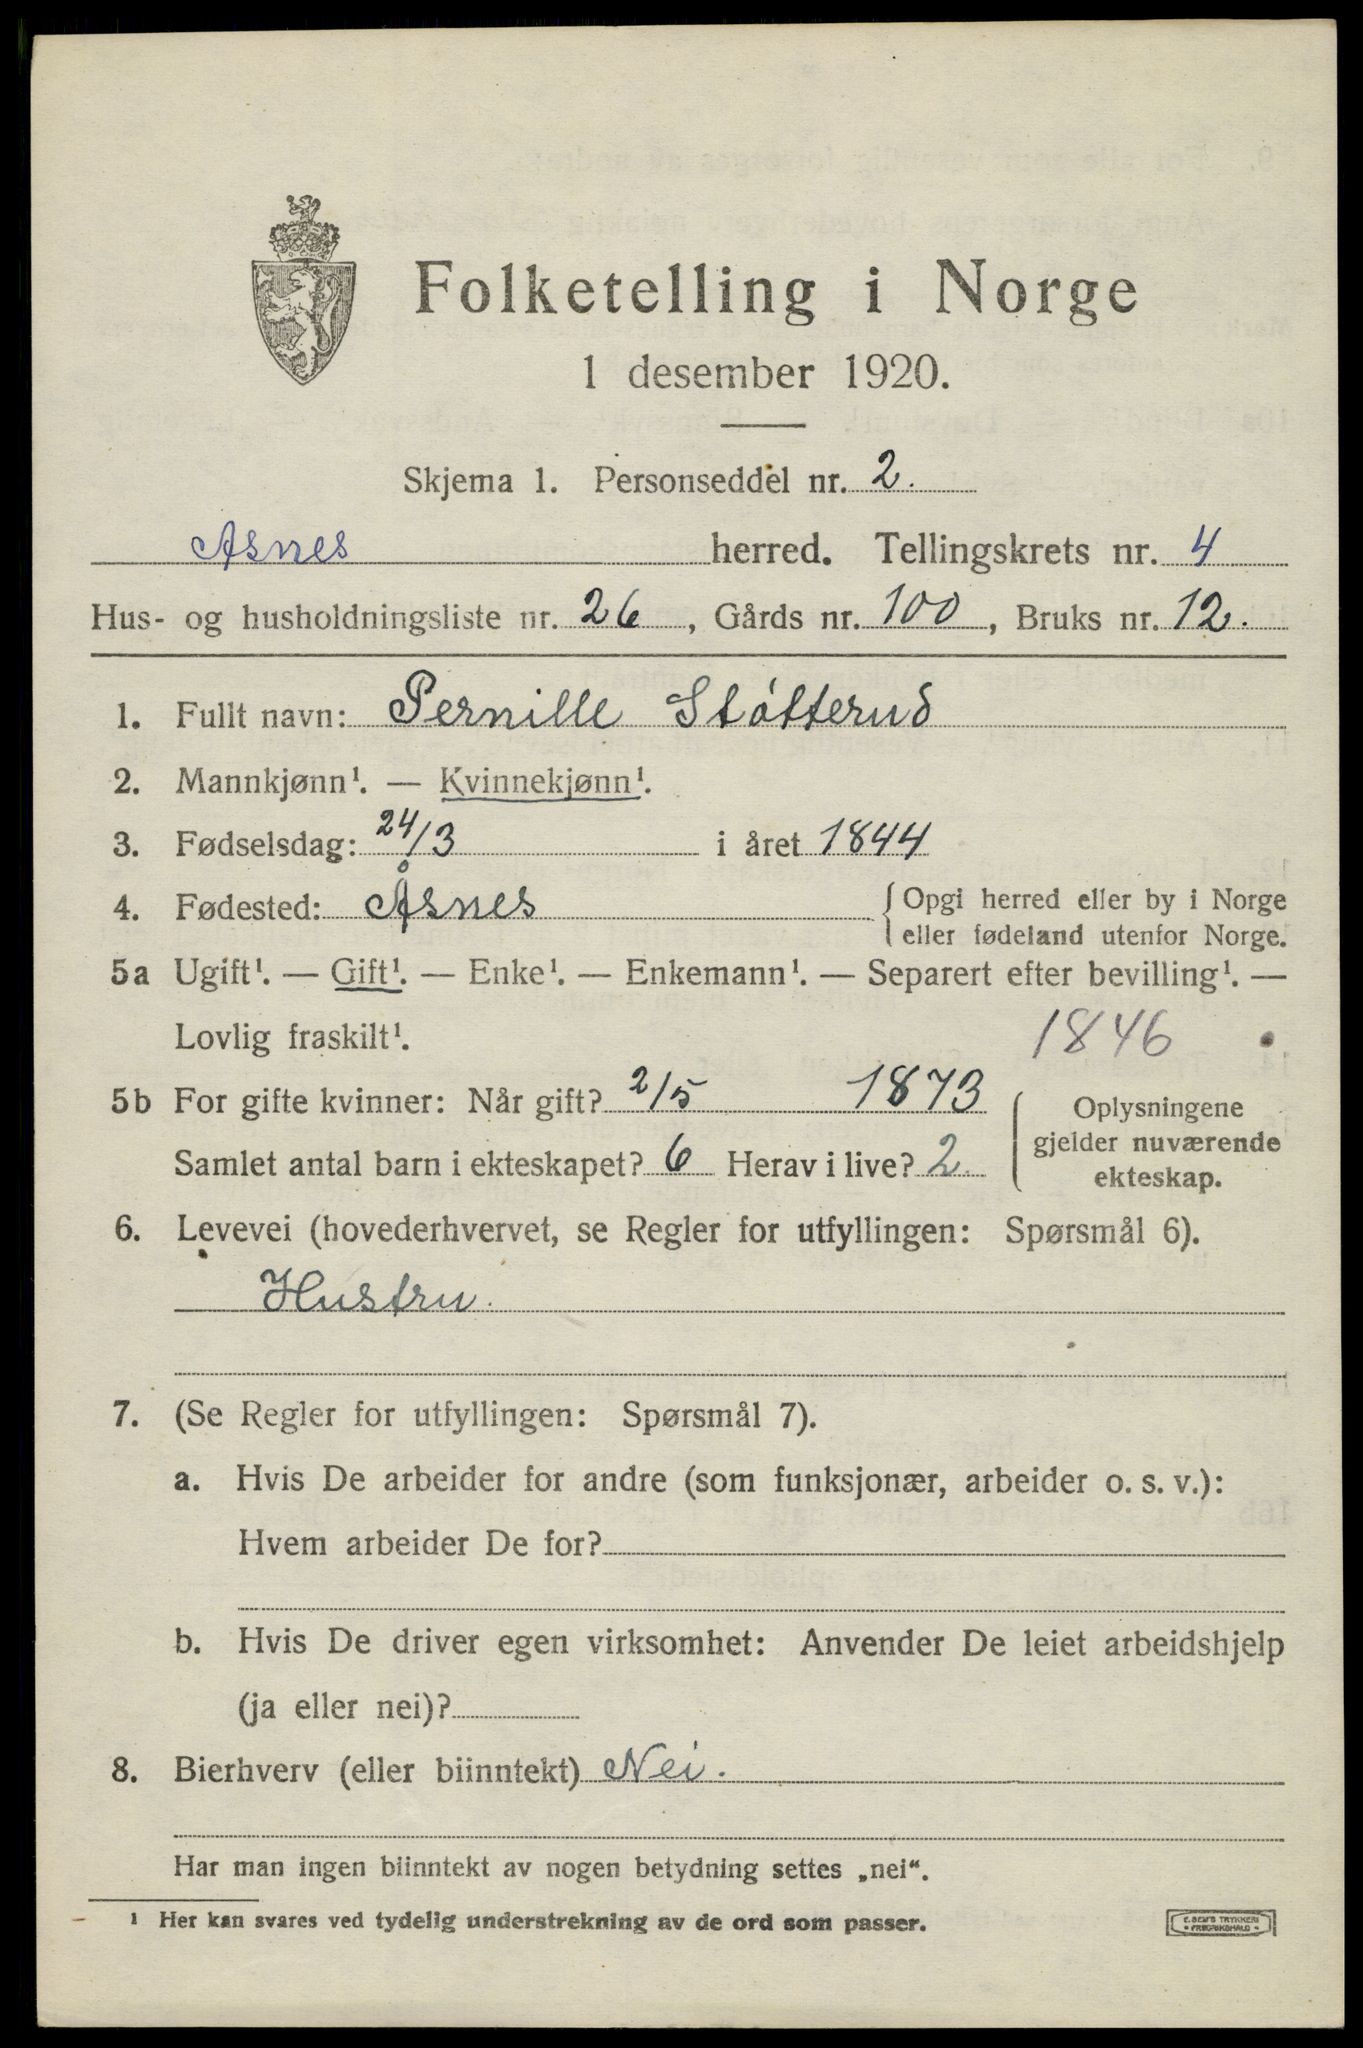 Folketelling i Norge
1 desember 1920.
Skjema 1. Personseddel nr. 2.
Asnes herred. Tellingskrets nr. 4
Hus- og husholdningsliste nr. 26, Gårds nr. 100, Bruks nr. 12.
1. Fullt navn: Pernille Støtterud
2. Mannkjønn¹. — Kvinnekjønn¹.
3. Fødselsdag: 24/3 i året 1844
4. Fødested: Åsnes { Opgi herred eller by i Norge
eller fødeland utenfor Norge.
5a Ugift¹. — Gift¹. — Enke¹. — Enkemann¹. — Separert efter bevilling¹. —
Lovlig fraskilt¹. 1846
5b For gifte kvinner: Når gift? 2/5 1873
Samlet antal barn i ekteskapet? 6 Herav i live? 2
Oplysningene
gjelder nuværende
ekteskap.
6. Levevei (hovederhvervet, se Regler for utfyllingen: Spørsmål 6).
Hustru.
7. (Se Regler for utfyllingen: Spørsmål 7).
a. Hvis De arbeider for andre (som funksjonær, arbeider o. s. v.):
Hvem arbeider De for?
b. Hvis De driver egen virksomhet: Anvender De leiet arbeidshjelp
(ja eller nei)?
8. Bierhverv (eller biinntekt) Nei.
Har man ingen biinntekt av nogen betydning settes „nei“.
¹ Her kan svares ved tydelig understrekning av de ord som passer.
E. SEMS TRYKKERI
• FREDRIKSHALD •